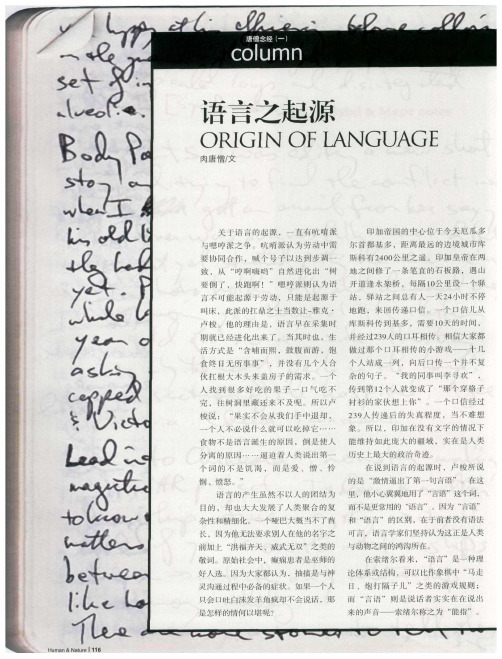 唐僧念经(一)
column
语言之起源
ORIGIN OF LANGUAGE
肉唐僧/文
关于语言的起源，一直有吭唷派
与嗯哼派之争。吭唷派认为劳动中需
要协同合作，喊个号子以达到步调一
致，从“哼啊嗨哟”自然进化出“树
要倒了，快跑啊！”嗯哼派则认为语
言不可能起源于劳动，只能是起源于
叫床，此派的扛鼎之士当数让-雅克·
卢梭。他的理由是，语言早在采集时
期就已经进化出来了。当其时也，生
活方式是“含哺而熙，鼓腹而游，饱
食终日无所事事”，并没有几个人合
伙扛根大木头来盖房子的需求。一个
人找到很多好吃的果子一口气吃不
完，往树洞里藏还来不及呢。所以卢
梭说：“果实不会从我们手中退却，
一个人不必说什么就可以吃掉它……
食物不是语言诞生的原因，倒是使人
分离的原因……逼迫着人类说出第一
个词的不是饥渴，而是爱、憎、怜
悯、愤怒。”
语言的产生虽然不以人的团结为
目的，却也大大发展了人类聚合的复
杂性和精细化。一个哑巴大概当不了酋
长，因为他无法要求别人在他的名字之
前加上“洪福齐天、威武无双”之类的
敬词。原始社会中，癫痫患者是巫师的
好人选。因为大家都认为，抽搐是与神
灵沟通过程中必备的症状。如果一个人
只会口吐白沫发羊角疯却不会说话，那
是怎样的情何以堪呢？
印加帝国的中心位于今天厄瓜多
尔首都基多，距离最远的边境城市库
斯科有2400公里之遥。印加皇帝在两
地之间修了一条笔直的石板路，遇山
开道逢水架桥，每隔10公里设一个驿
站，驿站之间总有人一天24小时不停
地跑，来回传递口信。一个口信儿从
库斯科传到基多，需要10天的时间，
并经过239人的口耳相传。相信大家都
做过那个口耳相传的小游戏——十几
个人站成一列，向后口传一个并不复
杂的句子。“我的同事叫李寻欢”，
传到第12个人就变成了“那个穿格子
衬衫的家伙想上你”。一个口信经过
239人传递后的失真程度，当不难想
象。所以，印加在没有文字的情况下
能维持如此庞大的疆域，实在是人类
历史上最大的政治奇迹。
在说到语言的起源时，卢梭所说
的是“激情逼出了第一句言语”。在这
里，他小心翼翼地用了“言语”这个词，
而不是更常用的“语言”。因为“言语”
和“语言”的区别，在于前者没有语法
可言，语言学家们坚持认为这正是人类
与动物之间的鸿沟所在。
在索绪尔看来，“语言”是一种理
论体系或结构，可以比作象棋中“马走
日，炮打隔子儿”之类的游戏规则；
而“言语”则是说话者实实在在说出
来的声音——索绪尔称之为“能指”。
set of
Body
story
when I
his old
yet.
whole
year
asking
Lead
to know
matters
between
Human & Nature | 116